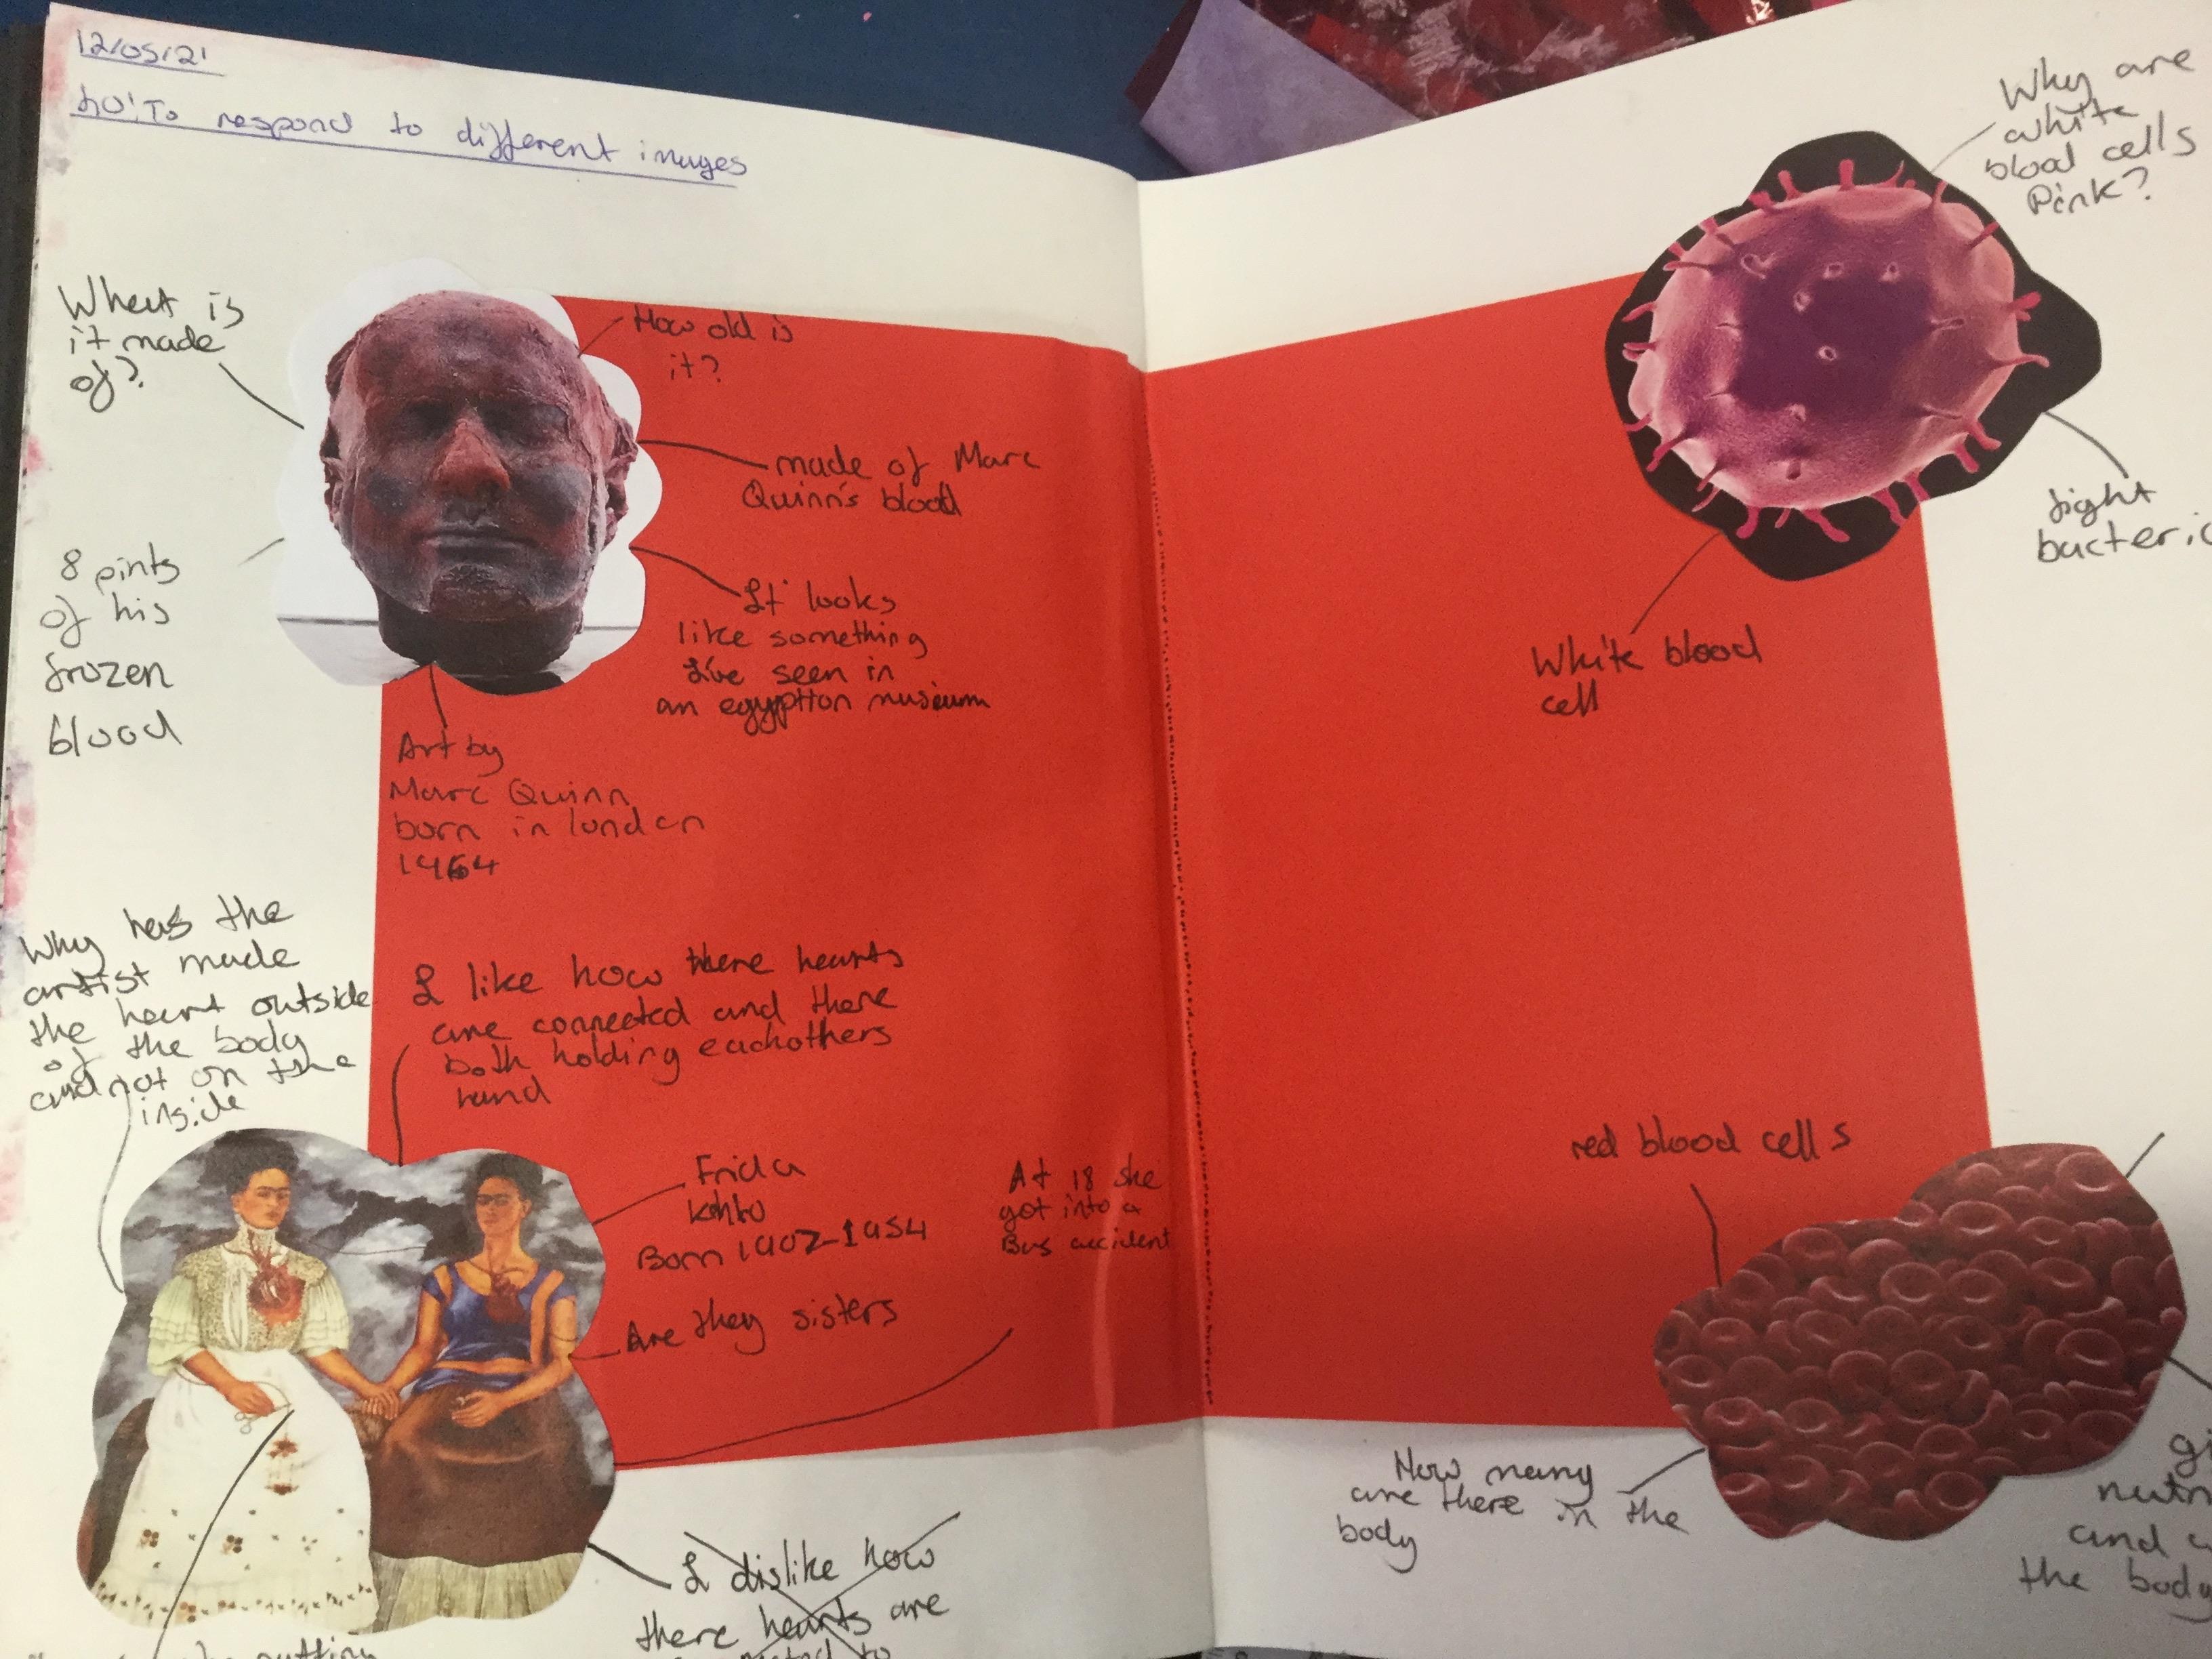 12/05/21
LO: To respond to different images
What is
it made
of?
How old is
it?
made of Marc
Quinn's blood
8 pints
of his
frozen
blood
It looks
like something
I've seen in
an egyption museum
Art by
Marc Quinn
born in london
1964
Why has the
artist made
the heart outside
of the body
and not on the
inside
I like how there hearts
are connected and there
both holding eachothers
hand
Frida
Kahlo
Born 1907-1954
At 18 she
got into a
Bus accident
Are they sisters
I dislike how
there hearts are
to
Why are
white
blood cells
Pink?
fight
bacteri
White blood
cell
red blood cells
How many
are there in the
body
gi
nutr
and
the body